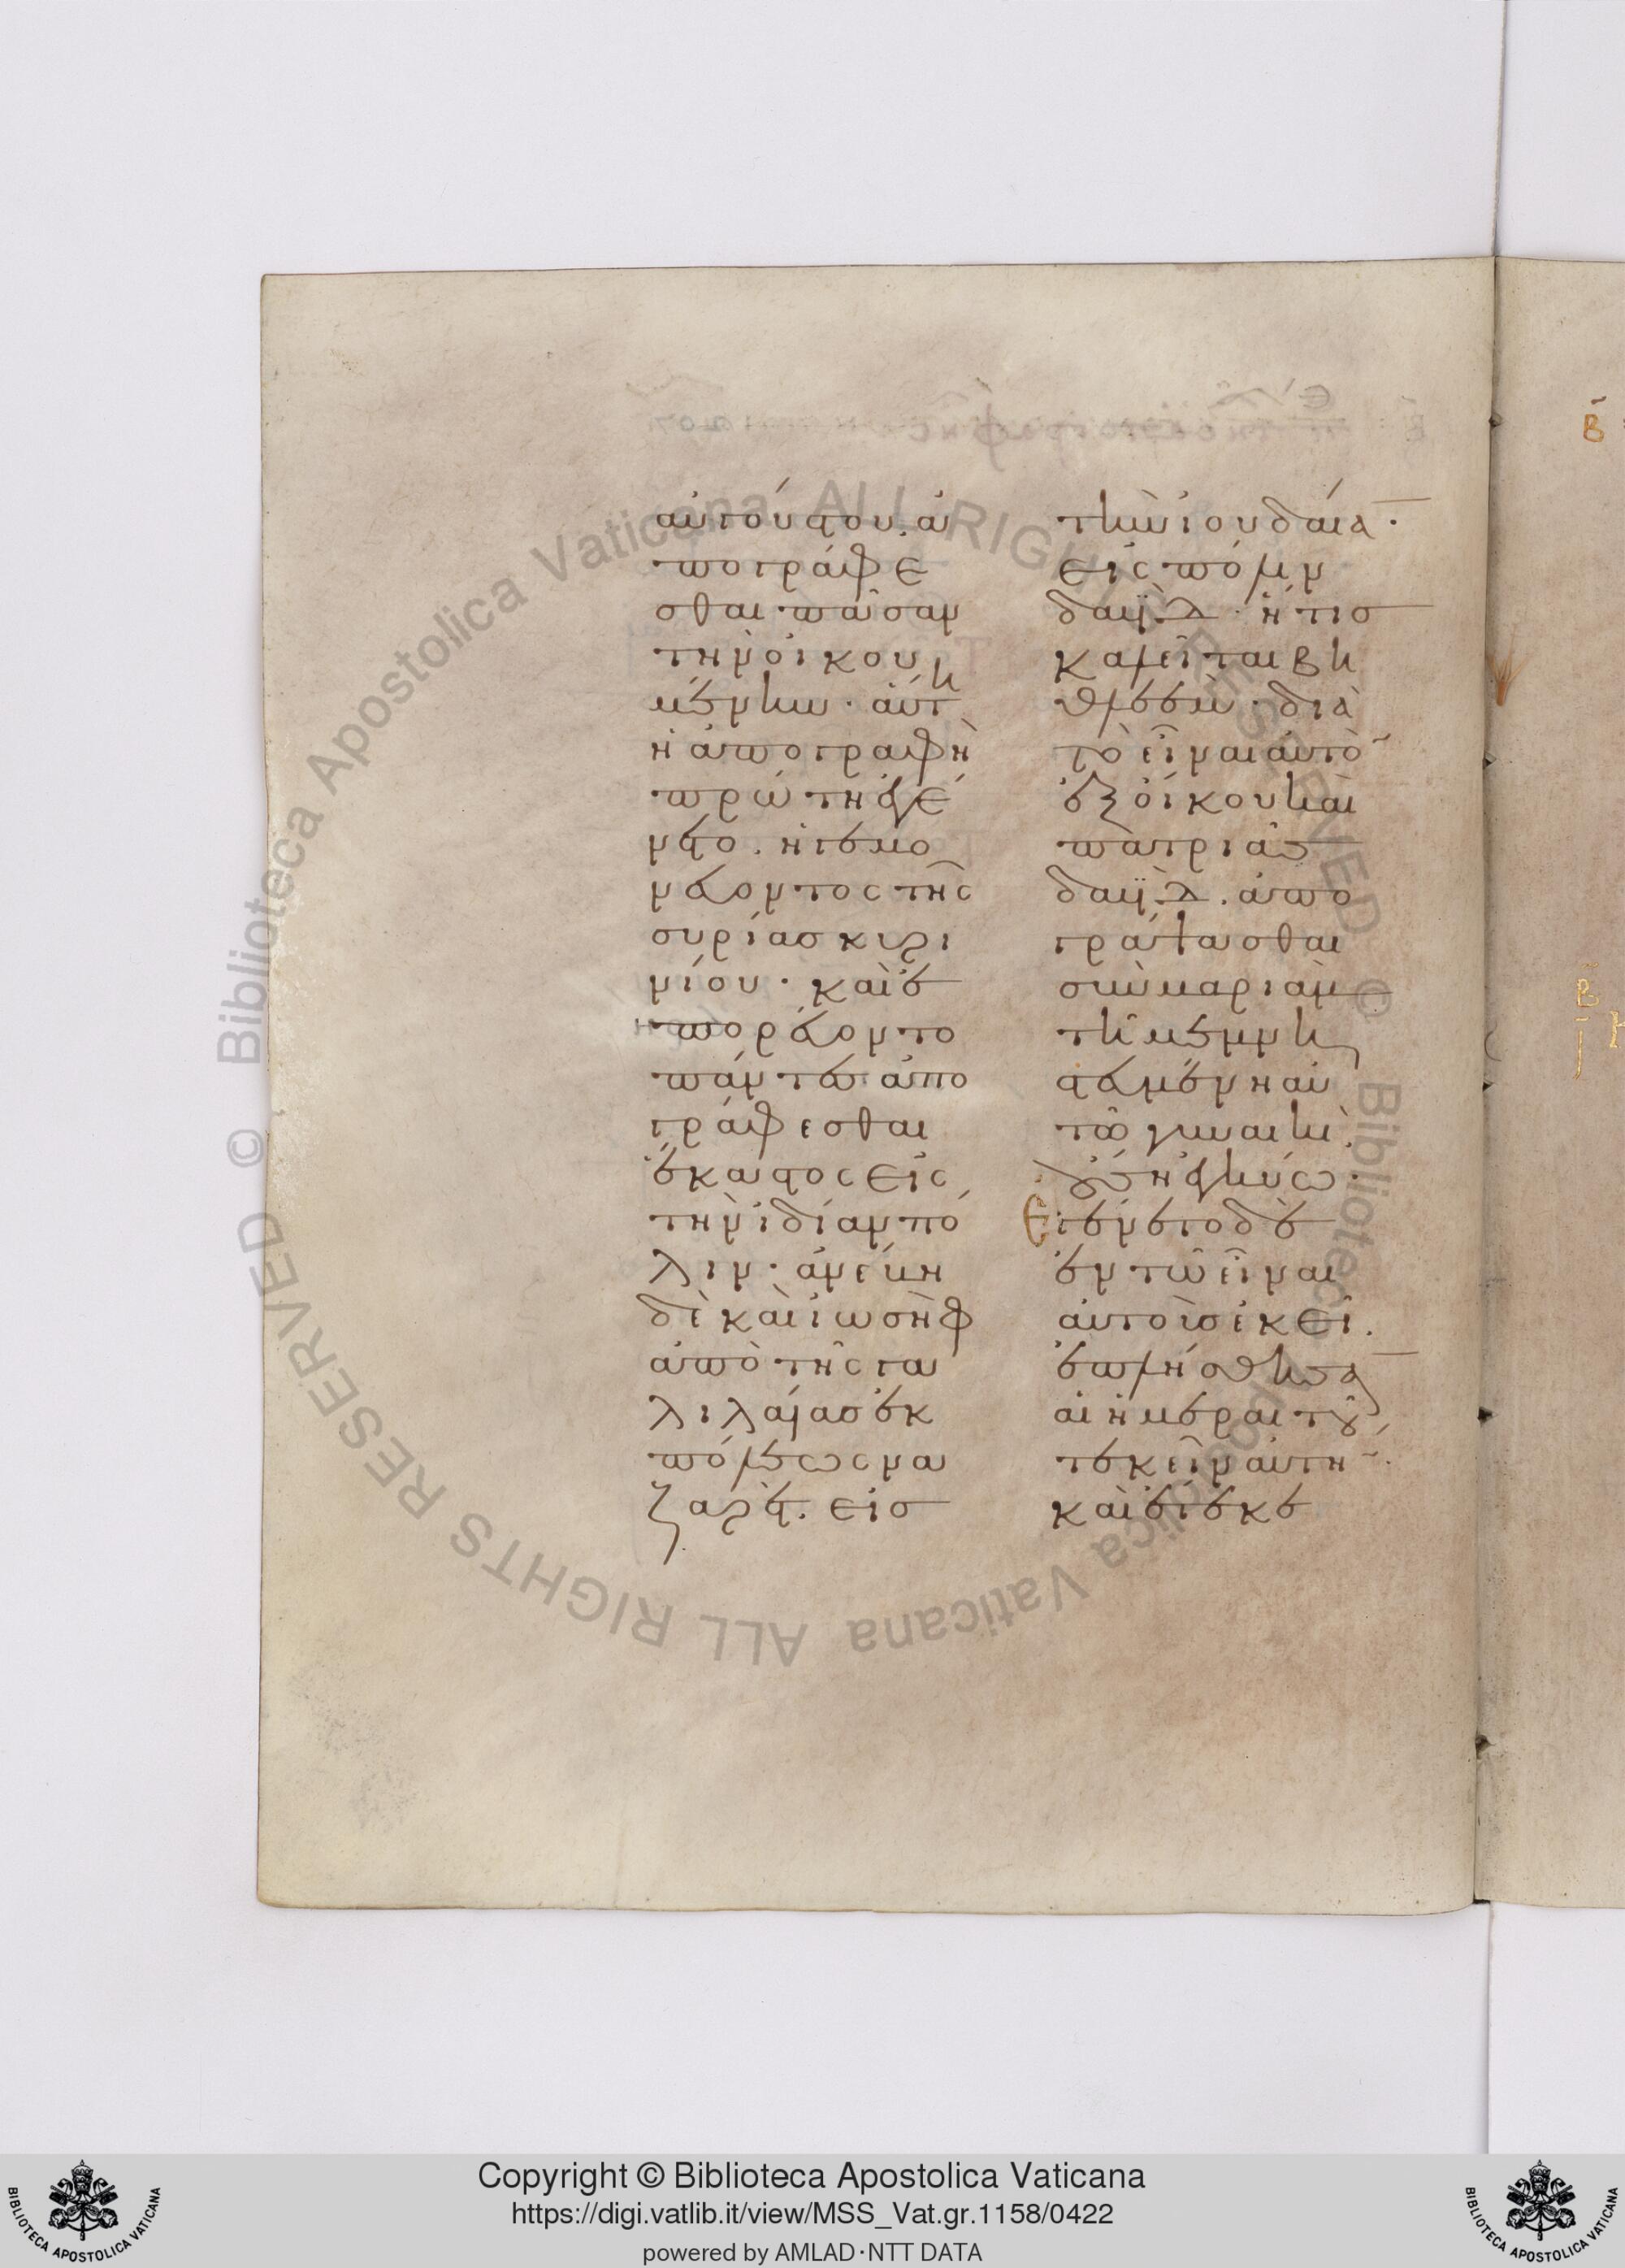 αὐγούστου. ἀ
πογράφε
σθαι πᾶσαν
τὴν οἰκου
μένην · αὕτη
ἡ ἀπογραφὴ
πρώτη ἐγέ
νετο. ἡγεμο
νεύοντος τῆς
συρίας κυρι
νίου · καὶ ἐ
πορεύοντο
πάντες ἀπο
γράφεσθαι
ἕκαστος εἰς
τὴν ἰδίαν πό
λιν · ἀνέβη
δὲ καὶ ἰωσὴφ
ἀπὸ τῆς γα
λιλαίας ἐκ
πόλεως να
ζαρέτ. εἰς
τὴν ἰουδαία̅ ·
εἰς πόλιν
δαυΐδ · ἥτις
καλεῖται βη
θλεέμ · διὰ
τὸ εἶναι αὐτὸ̅
ἐξ οἴκου καὶ
πατριᾶς
δαυΐδ. ἀπο
γράψασθαι
σὺν μαριὰμ
τῆ μεμνη
στευμένη αὐ
τῶ γυναικὶ.
οὔση ἐγκύω ·
Ἐγένετο δὲ
ἐν τῶ εἶναι
αὐτοὺς ἐκεῖ.
ἐπλήσθησα̅
αἱ ἡμέραι τοῦ
τεκεῖν αὐτή̅ν.
καὶ ἔτεκε
© Biblioteca Apostolica Vaticana ALL RIGHTS RESERVED © Biblioteca Apostolica Vaticana ALL RIGHTS RESERVED
Copyright © Biblioteca Apostolica Vaticana
https://digi.vatlib.it/view/MSS_Vat.gr.1158/0422
powered by AMLAD·NTT DATA
BIBLIOTECA APOSTOLICA VATICANA
BIBLIOTECA APOSTOLICA VATICANA